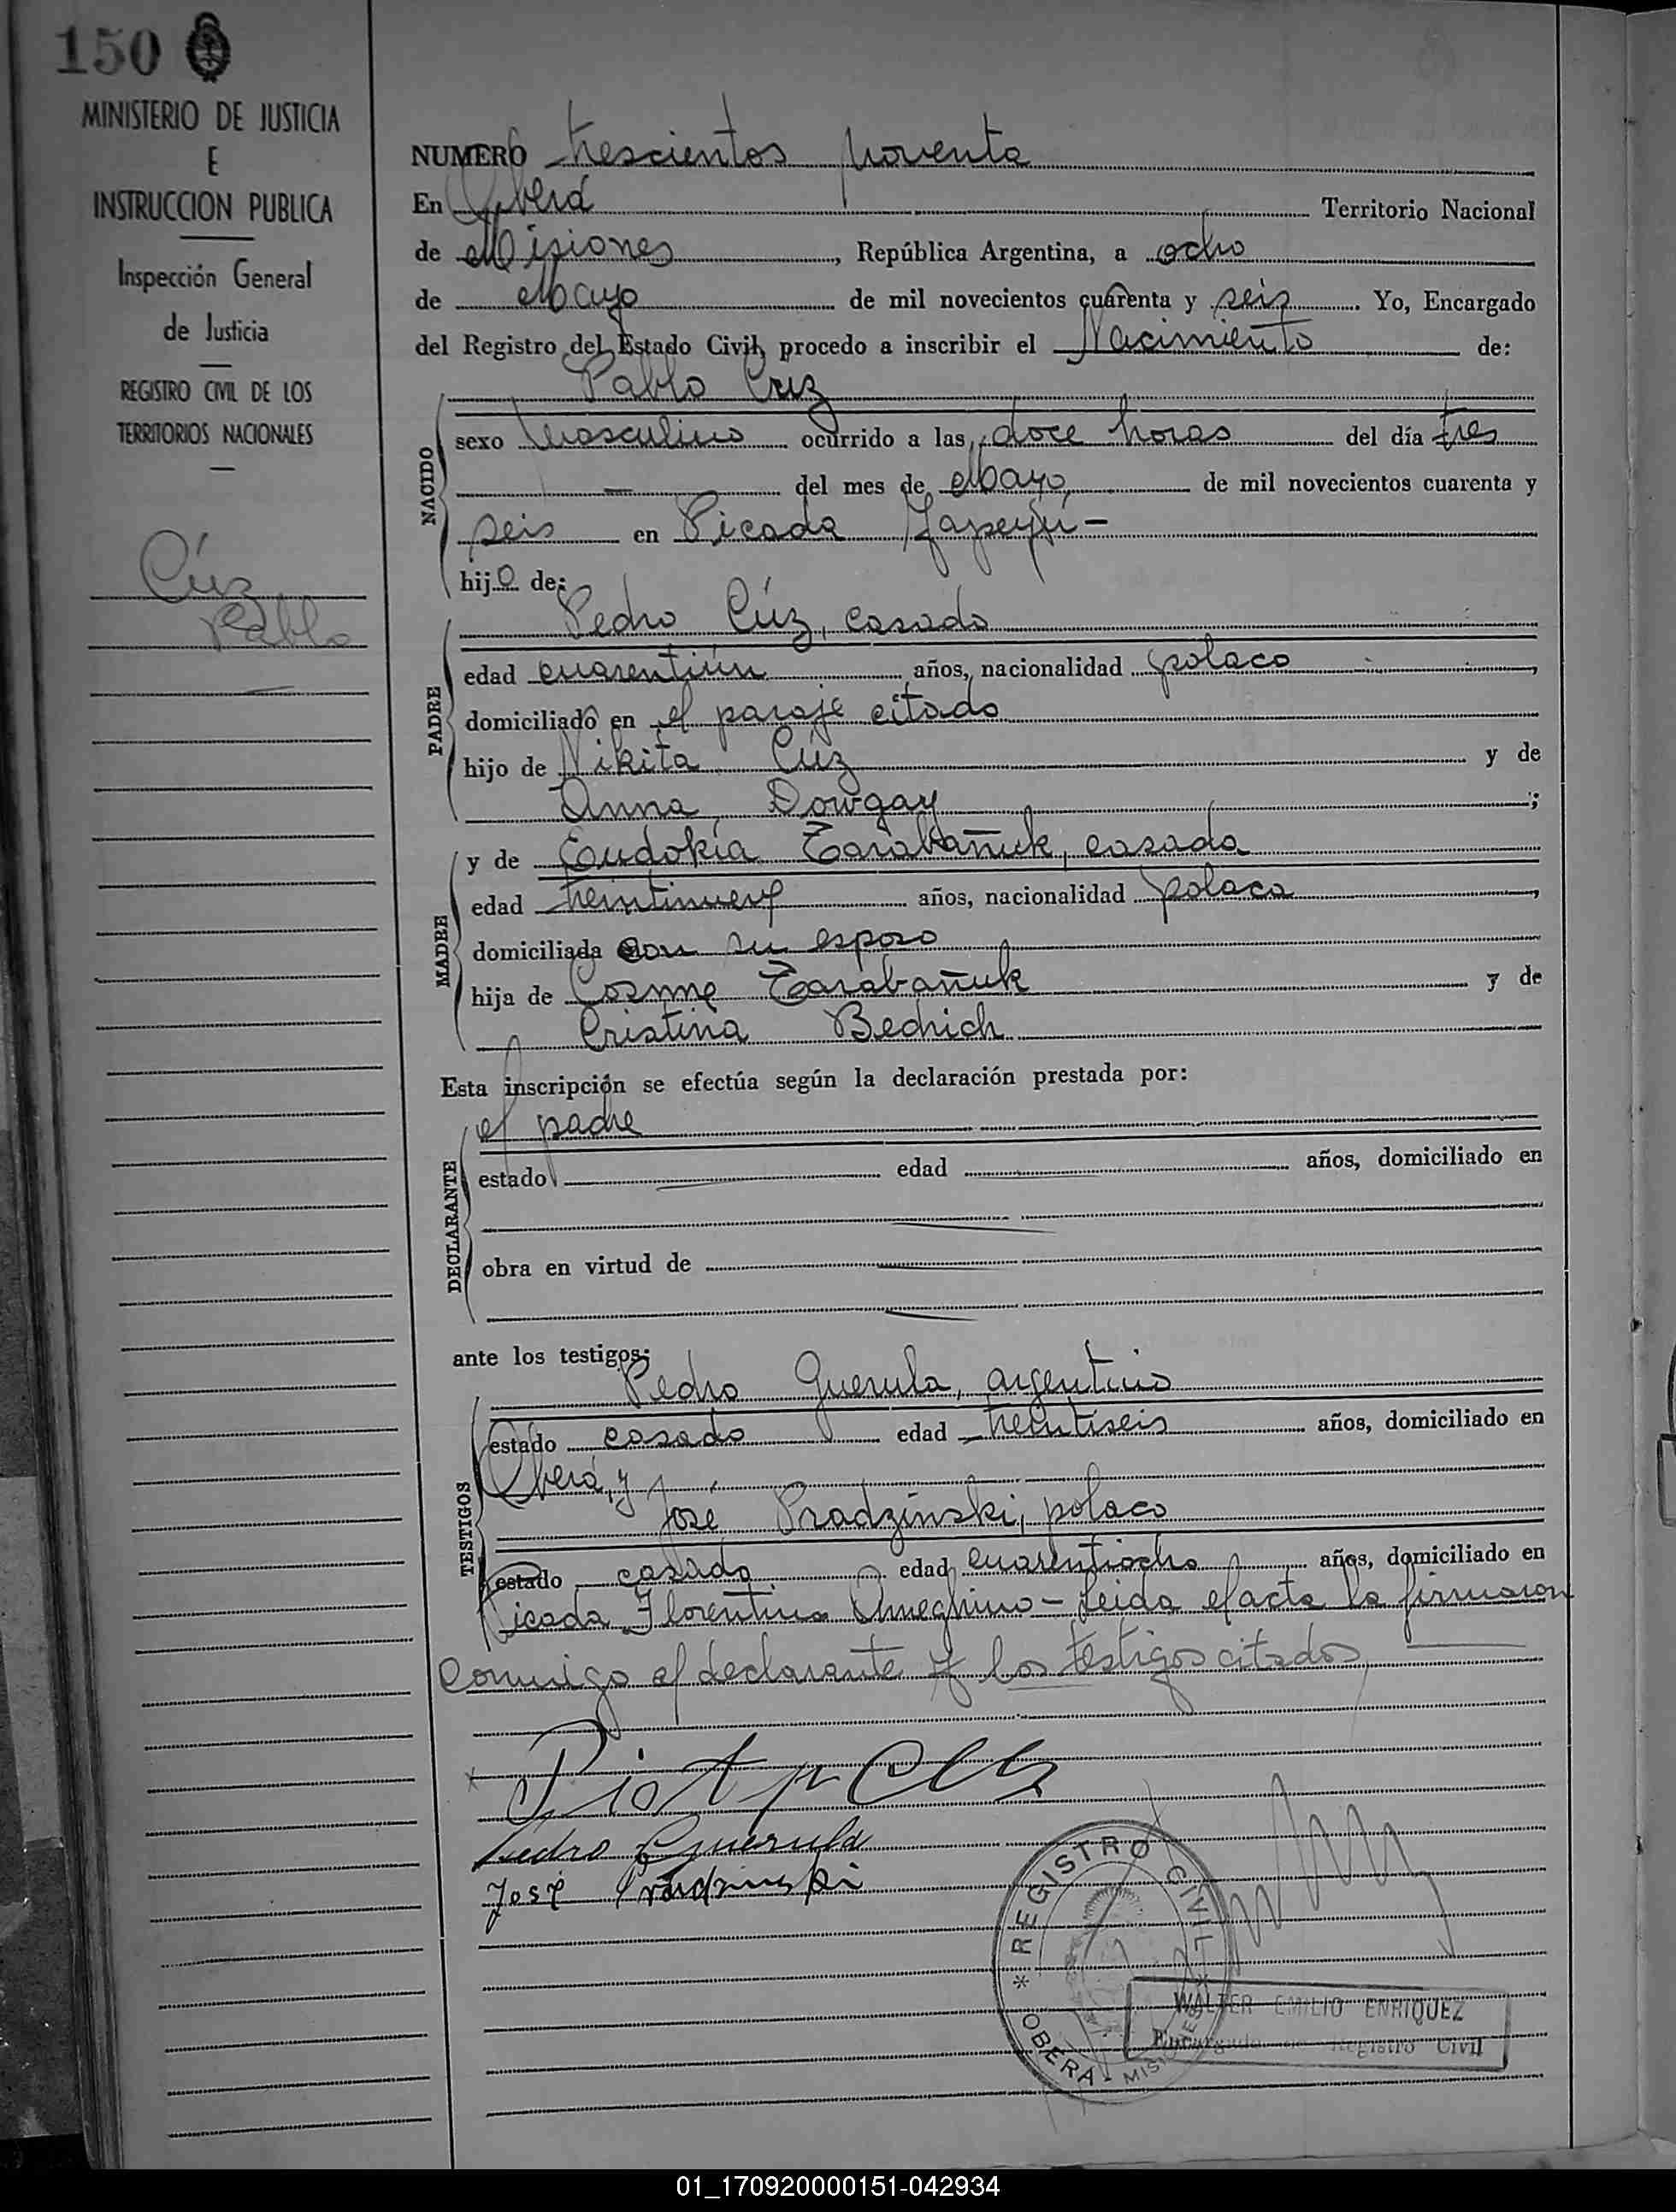 150
MINISTERIO DE JUSTICIA
E
INSTRUCCION PUBLICA
Inspección General
de Justicia
REGISTRO CIVIL DE LOS
TERRITORIOS NACIONALES
Cúz
Pablo
NUMERO trescientos noventa
En Oberá Territorio Nacional
de Misiones, República Argentina, a ocho
de Mayo de mil novecientos cuarenta y seis. Yo, Encargado
del Registro del Estado Civil, procedo a inscribir el Nacimiento de:
NACIDO
Pablo Cruz
sexo masculino ocurrido a las doce horas del día tres
del mes de Mayo, de mil novecientos cuarenta y
seis en Picada Yapeyú-
hijo de:
PADRE
Pedro Cúz, casado
edad cuarentiún años, nacionalidad polaco,
domiciliado en el paraje citado
hijo de Nikita Cúz y de
Anna Dowgay;
MADRE
y de Eudokia Tarabañuk, casada
edad treintinueve años, nacionalidad polaca,
domiciliada con su esposo
hija de Cosme Tarabañuk y de
Cristina Bedrich
Esta inscripción se efectúa según la declaración prestada por:
DECLARANTE
el padre
estado edad años, domiciliado en
obra en virtud de
ante los testigos:
TESTIGOS
Pedro Querula, argentino
estado casado edad treintiseis años, domiciliado en
Oberá, y
José Pradzinski, polaco
estado casado edad cuarentiocho años, domiciliado en
Picada Florentino Ameghino - Leida el acta la firmaron
conmigo el declarante y los testigos citados
Piotr Cuz
Pedro Querula
José Pradzinski
REGISTRO CIVIL
OBERÁ MISIONES
WALTER EMILIO ENRIQUEZ
Encargado de Registro Civil
01_170920000151-042934